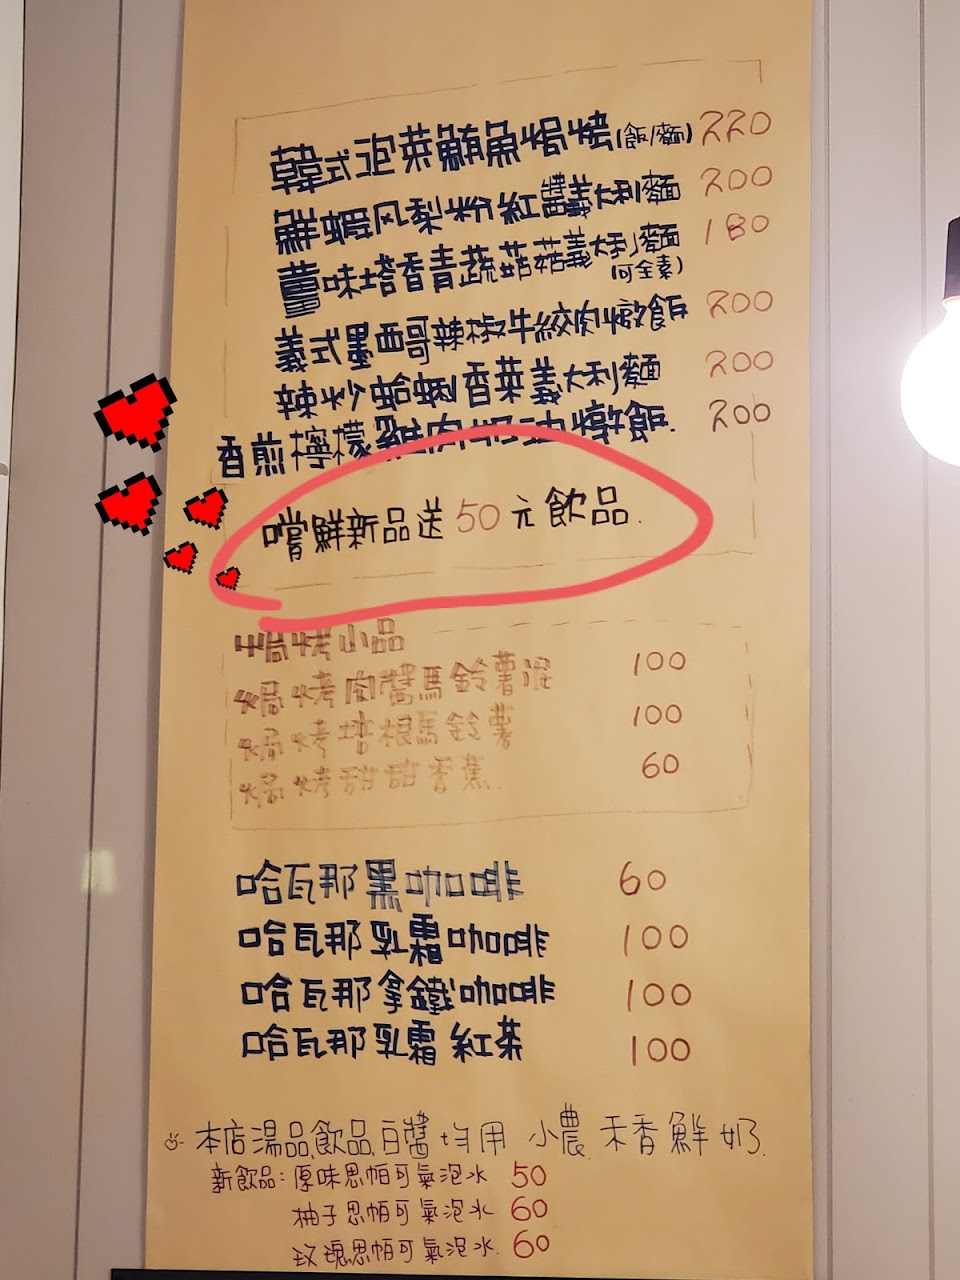 韓式泡菜鮪魚焗烤(飯/麵) 220
鮮蝦风梨粉紅醬義大利麵 200
薑味塔香青蔬菇菇義大利麵 180
(可全素)
義式墨西哥辣椒牛絞肉燉飯 200
辣炒蛤蜊香菜義大利麵 200
香煎檸檬雞肉奶油燉飯. 200
嚐鮮新品送50元飲品.
焗烤小品
焗烤肉醬馬鈴薯泥 100
焗烤培根馬鈴薯 100
焗烤甜甜香蕉. 60
哈瓦那黑咖啡 60
哈瓦那乳霜咖啡 100
哈瓦那拿鐵咖啡 100
哈瓦那乳霜紅茶 100
本店湯品,飲品,白醬均用 小農 禾香鮮奶.
新飲品:原味思帕可氣泡水 50
柚子思帕可氣泡水 60
玫瑰思帕可氣泡水. 60